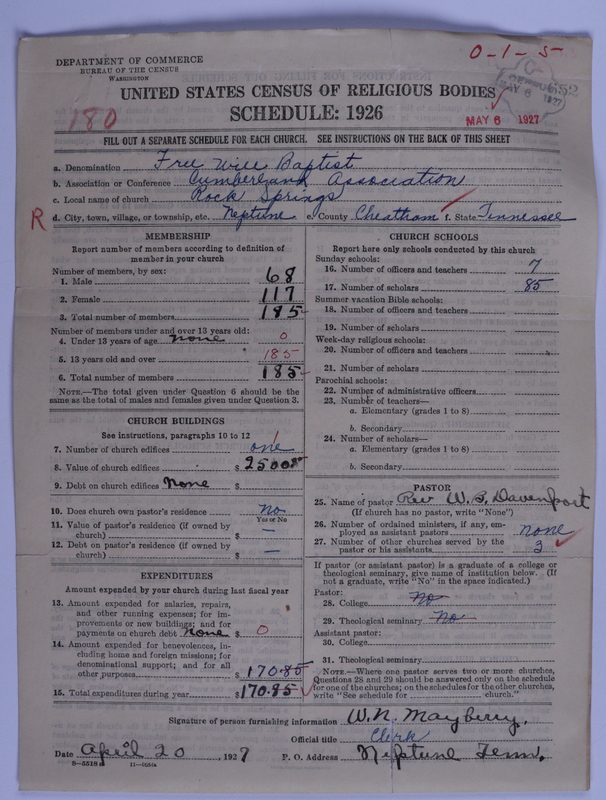 DEPARTMENT OF COMMERCE
BUREAU OF THE CENSUS
WASHINGTON
0-1-5
180
UNITED STATES CENSUS OF RELIGIOUS BODIES
SCHEDULE: 1926
MAY 6 1927
FILL OUT A SEPARATE SCHEDULE FOR EACH CHURCH. SEE INSTRUCTIONS ON THE BACK OF THIS SHEET
a. Denomination Free Will Baptist
b. Association or Conference Cumberland Association
c. Local name of church Rock Springs
R d. City, town, village, or township, etc. Neptune e. County Cheatham f. State Tennessee
MEMBERSHIP
Report number of members according to definition of
member in your church
Number of members, by sex:
1. Male 68
2. Female 117
3. Total number of members 185
Number of members under and over 13 years old:
4. Under 13 years of age None 0
5. 13 years old and over 185
6. Total number of members 185
NOTE.—The total given under Question 6 should be
same as the total of males and females given under Question 3.
CHURCH BUILDINGS
See instructions, paragraphs 10 to 12
7. Number of church edifices one 1
8. Value of church edifices $ 2500
9. Debt on church edifices None $
10. Does church own pastor's residence No
Yes or No
11. Value of pastor's residence (if owned by
church) $ —
12. Debt on pastor's residence (if owned by
church) $ —
EXPENDITURES
Amount expended by your church during last fiscal year
13. Amount expended for salaries, repairs,
and other running expenses; for im-
provements or new buildings; and for
payments on church debt None $ 0
14. Amount expended for benevolences, in-
cluding home and foreign missions; for
denominational support; and for all
other purposes $ 170.85
15. Total expenditures during year $ 170.85
CHURCH SCHOOLS
Report here only schools conducted by this church
Sunday schools:
16. Number of officers and teachers 7
17. Number of scholars 85
Summer vacation Bible schools:
18. Number of officers and teachers
19. Number of scholars
Week-day religious schools:
20. Number of officers and teachers
21. Number of scholars
Parochial schools:
22. Number of administrative officers
23. Number of teachers—
a. Elementary (grades 1 to 8)
b. Secondary
24. Number of scholars—
a. Elementary (grades 1 to 8)
b. Secondary
PASTOR
25. Name of pastor Rev W. S. Davenport
(If church has no pastor, write "None")
26. Number of ordained ministers, if any, em-
ployed as assistant pastors none
27. Number of other churches served by the
pastor or his assistants 3
If pastor (or assistant pastor) is a graduate of a college or
theological seminary, give name of institution below. (If
not a graduate, write "No" in the space indicated.)
Pastor:
28. College No
29. Theological seminary No
Assistant pastor:
30. College
31. Theological seminary
NOTE.—Where one pastor serves two or more churches,
Questions 28 and 29 should be answered only on the schedule
for one of the churches; on the schedules for the other churches,
write "See schedule for church."
Signature of person furnishing information W. N. Mayberry.
Official title Clerk
Date April 20, 1927 P. O. Address Neptune Tenn.